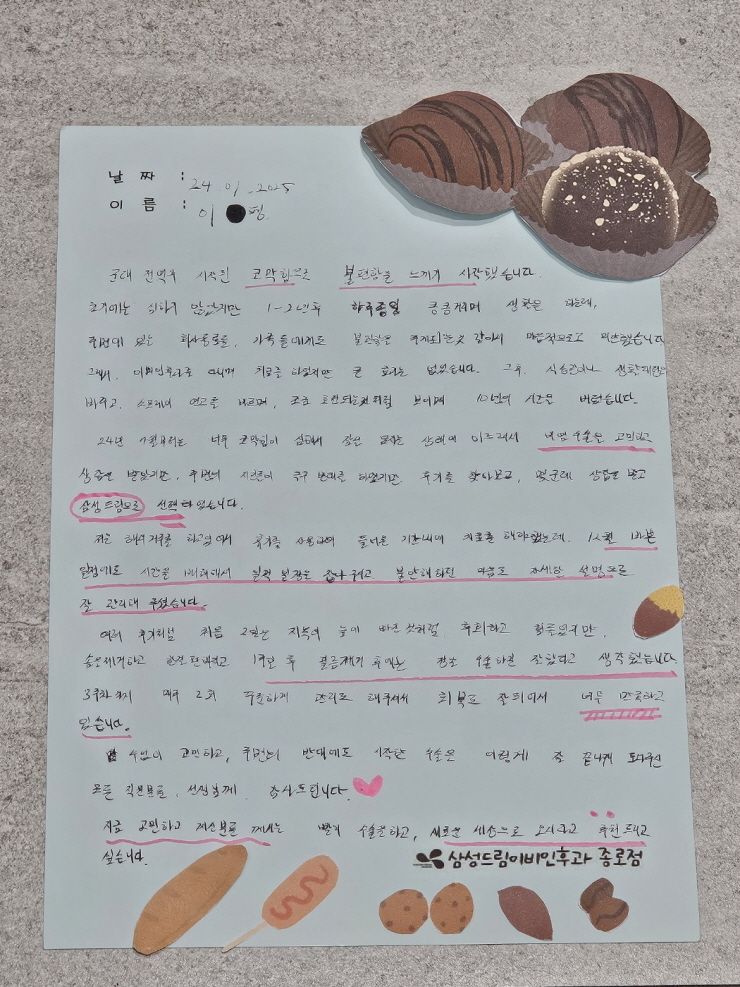 날 짜 : 24 01 . 2025
이 름 : 이 평.
군대 전역후 시작된 코막힘으로 불편함을 느끼기 시작했습니다.
초기에는 심하지 않았지만 1-2년후 하루종일 킁킁거리며 생활을 하는데,
주변에 있는 회사동료들, 가족들에게도 불편함을 주게되는것 같아서 마음적으로도 미안했습니다
그래서, 이비인후과를 다니며 치료를 하였지만 큰 효과는 없었습니다. 그후, 식습관이나 생활패턴도
바꾸고, 스프레이 연고를 바르며, 조금 호전되는것처럼 보이며 10년의 시간을 버텼습니다.
24년 부터는 너무 코막힘이 심해서 잠을 못자는 상태에 이르러서 수술을 고민하고
상담을 받았지만, 주변의 지인들이 극구 반대를 하였지만 후기를 찾아보고, 몇군데 상담을 받고
삼성드림으로 선택하였습니다.
저는 해외 거주를 하고있어서 휴가를 사용하여 들어온 기간내에 치료를 해야했는데, 바쁜
일정에도 시간을 내서 불안해하던 마음도 자세한 설명으로
잘 관리해 주셨습니다
여러 후기처럼 처음 2일은 지옥의 늪에 빠진 것처럼 후회하고 힘들었지만,
솜을제거하고 1주일 후 붕금제거 후에는 정말 수술하길 잘했다고 생각했습니다.
3주차까지 매주 2회 꾸준하게 관리도 해주셔서 회복도 잘되어서 너무 만족하고
있습니다.
수없이 고민하고, 주변의 반대에도 시작한 수술은 이렇게 잘 끝나게 도와주신
모든 직원분들, 선생님께 감사드립니다.
지금 고민하고 계신분들 께서는 빨리 수술을하고, 새로운 세상으로 오시라고 추천드리고
싶습니다.
삼성드림이비인후과 종로점